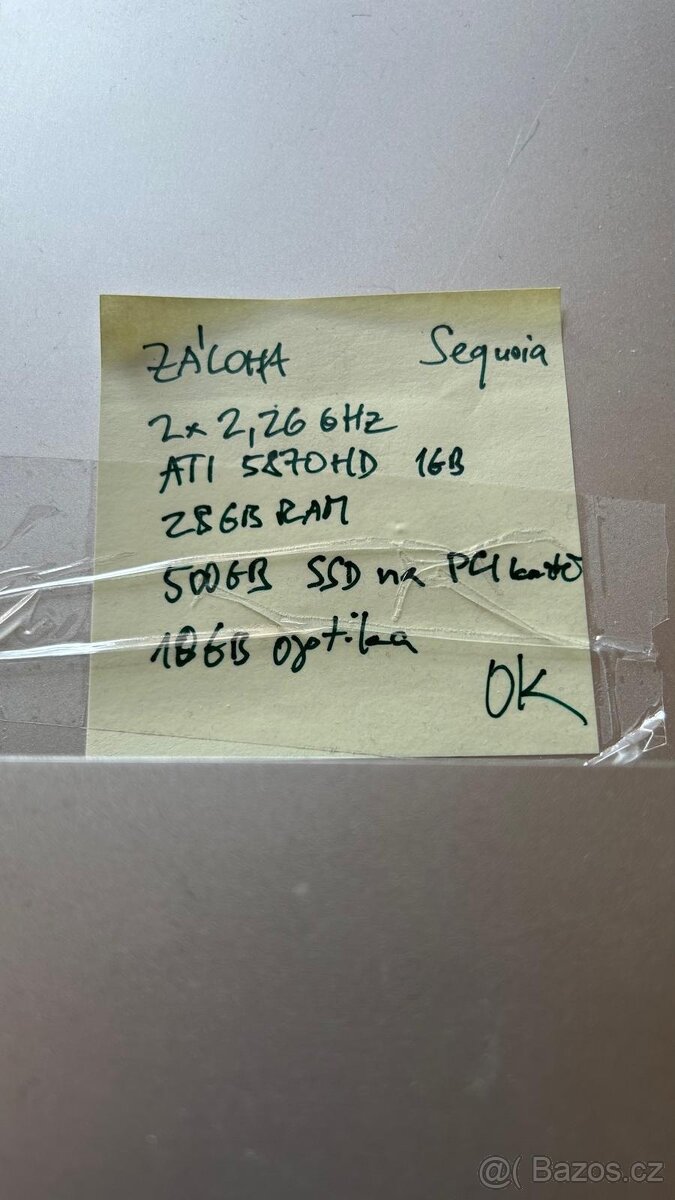 ZÁLOHA Sequoia
2x 2,26 GHz
ATI 5870HD 1GB
28GB RAM
500GB SSD na PCI kartě
18GB optika
OK
@( Bazos.cz